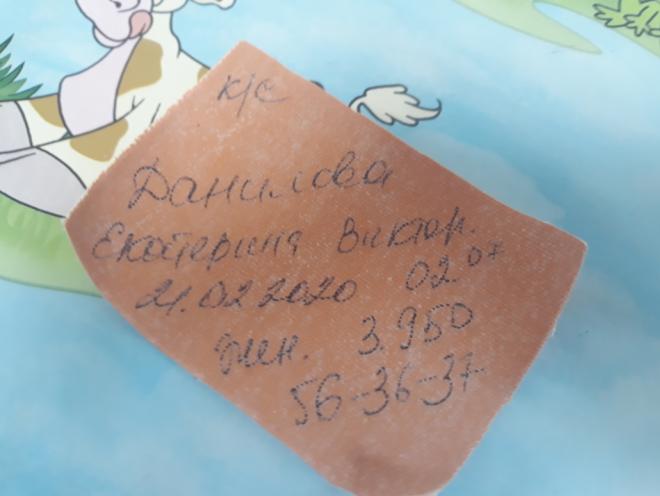 к/с
Данилова
Екатерина Виктор.
21.02.2020 02 07
жен. 3.950
56-36-37